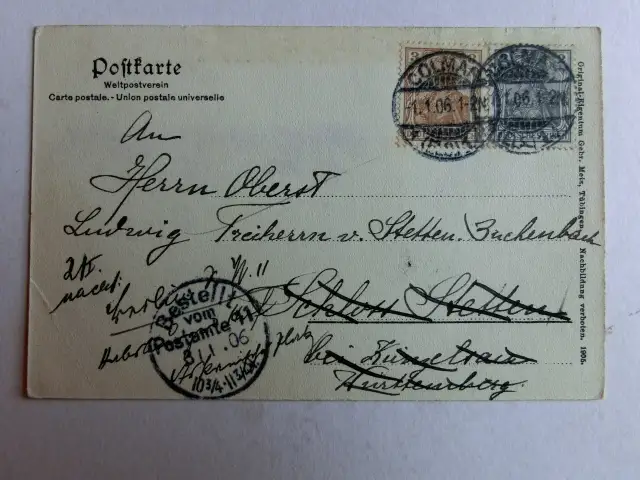 Postkarte
Weltpostverein
Carte postale. - Union postale universelle
COLMAR
1.1.06. 1-2N
COLMAR
1.06. 1-2N
An
Herrn Oberst
Ludwig Freiherrn v. Stetten. Buchenbach
Schloss Stetten
bei Künzelsau
Württemberg
Berlin W. 11
Bestellt
vom
Postamte 11
3/1.06
10¾-11¾V
Original-Eigentum Gebr. Metz, Tübingen. Nachbildung verboten. 1905.